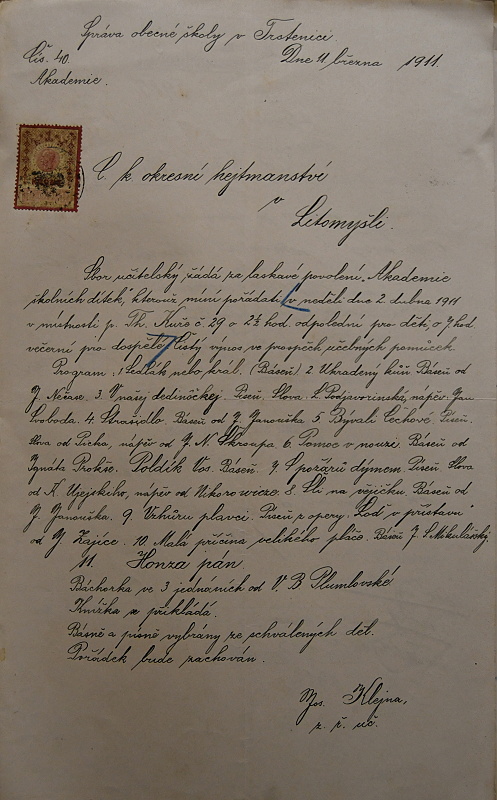 Správa obecné školy v Trstenici
Čís. 40. Dne 11 března 1911.
Akademie.
C. k. okresní hejtmanství
v
Litomyšli.
Sbor učitelský žádá za laskavé povolení „Akademie
školních dítek“, kterouž míní pořádati v neděli dne 2. dubna 1911
v místnosti p. Th. Kuře č. 29 o 2½ hod. odpolední pro děti, o 7 hod
večerní pro dospělé. Čistý výnos ve prospěch učebných pomůcek.
Program: 1 Sedlák nebo král. (Báseň) 2 Ukradený kůň Báseň od
J. Neřase. 3. V našej dedinôčkej. Píseň. Slova L. Podjavorinská, nápěv Jan
Svoboda. 4. Strašidlo. Báseň od J. Janouška 5. Bývali Čechové. Píseň.
Slova od Picka, nápěv od J. N. Škroupa 6. Pomoc v nouzi. Báseň od
Ignáta Prokše. Poldík Vos. Báseň. 7. S požárů dýmem. Píseň. Slova
od K. Ujejskiho, nápěv od Nikorowicze. 8. Šli na vějičku. Báseň od
J. Janouška. 9. Vzhůru plavci. Píseň z opery „Loď v přístavu“
od J. Zajíce. 10. Malá příčina velikého pláče. Báseň J. L. Mikulášský.
11. Honza pán.
Báchorka ve 3 jednáních od V. B. Plumlovské
Knížka se přikládá.
Básně a písně vybrány ze schválených děl.
Pořádek bude zachován.
Jos. Klejna,
z. ř. uč.